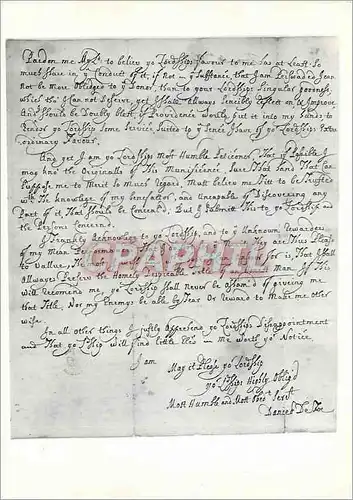 Pardon me My Ld to believ yor Lordships favour to me has at Least. So
much share in ye Conduct of it, if not in ye Substance, that I am Perswaded I can
not be more Obliged to ye Donor, than to your Lordships Singular goodness,
which tho' I can not Deserve, yet I shall allways Sencibly Reflect on & Improve
And Should be Doubly blest, if Providence would put it into my hands to
Render yor Lordship Some Service Suited to ye Sence I have of yor Lordships Extra
ordinary Favour.
And yet I am yor Lordships Most Humble Peticoner, That if Possible I
may kno' the Originalls of this Munificence, Sure That hand That Can
Suppose me to Merit So Much Regard, Must believ me Fitt to be Trusted
with the Knowledge of my benefactor, and Uncapable of Discovering any
Part of it That Should be Conceal'd, But I Submitt This to yor Lordship and
the Persons Concern'd.
I Frankly Acknowlege to yor Lordship, and to ye Unknown Rewarders
of my Mean Performances
to Vallue
Allways Preserv the Homely Despicable Title of an honest Man. If This
will recomend me, yor Lordship shall Never be Asham'd of giveing me
that Title, Nor my Enemys be able by Fear Or Reward to Make me other
wise.
In all other things I justly Apprehend yor Lordships Disappointment
and That yor Ldship will find little Else in me worth yor Notice.
I am
May it Please yor Lordship
yor Ldships Highly Oblig'd
Most Humble and Most Obedt Servt
Daniel De Foe
CPAPHIL